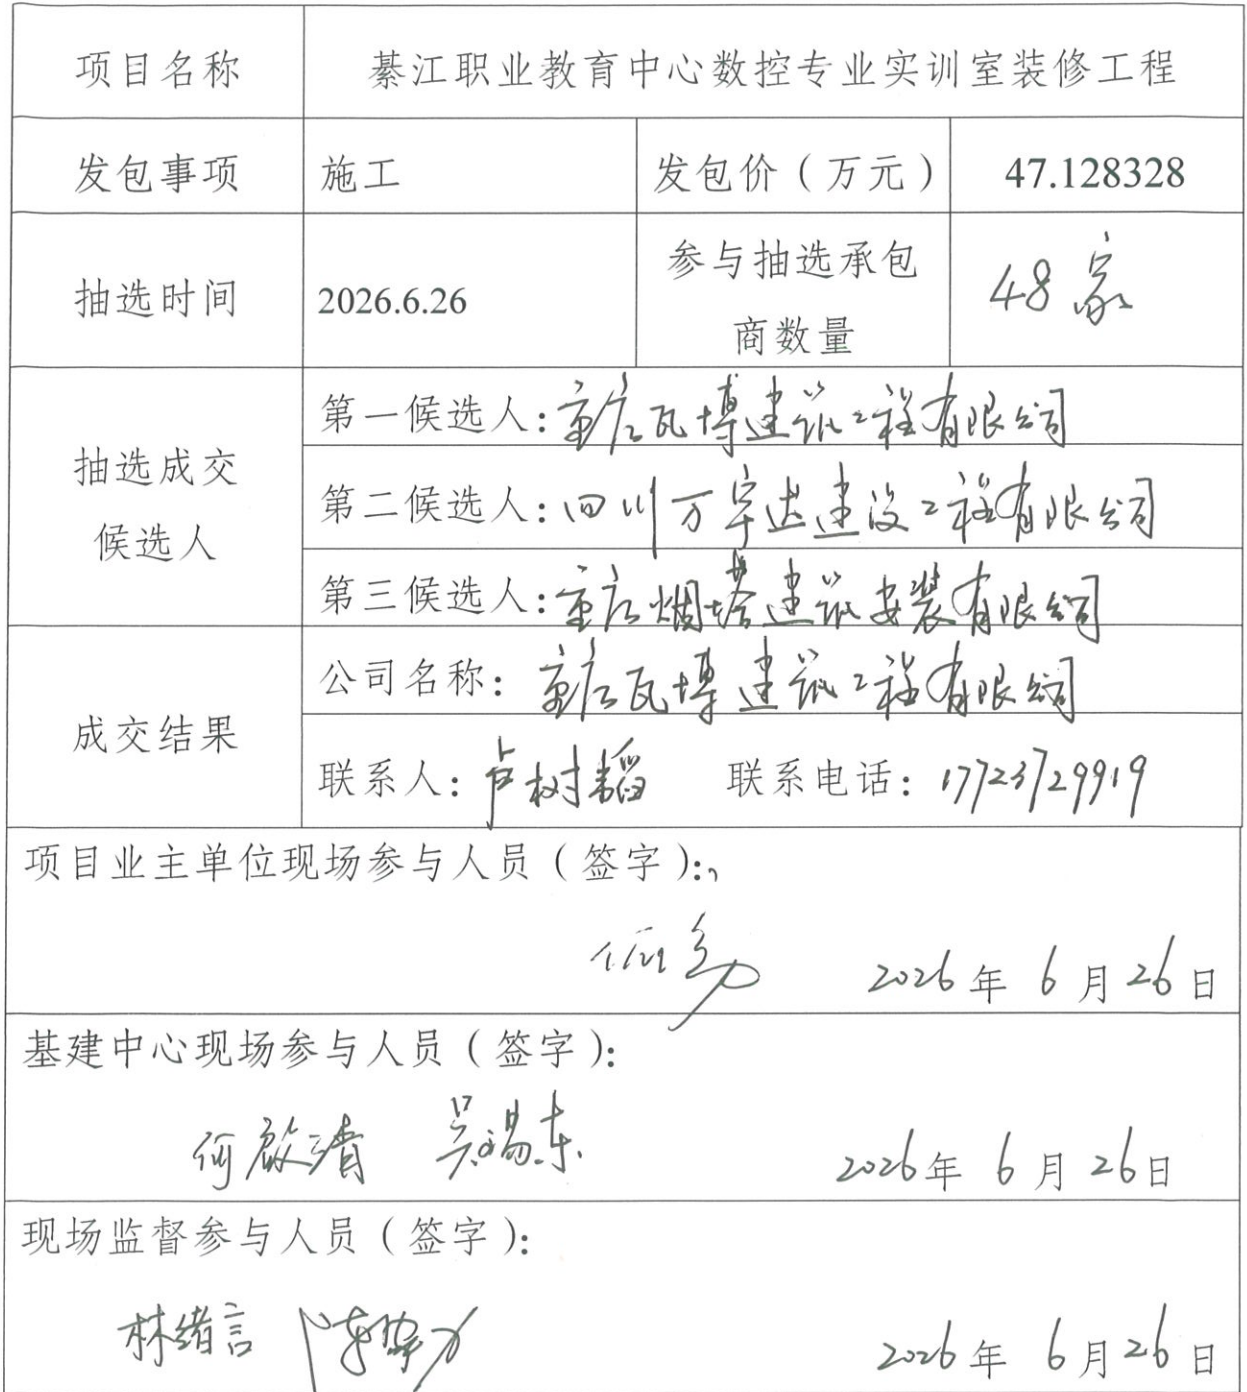 项目名称 綦江职业教育中心数控专业实训室装修工程
发包事项 施工 发包价（万元） 47.128328
抽选时间 2026.6.26 参与抽选承包商数量 48家
抽选成交候选人
第一候选人：重庆瓦博建筑工程有限公司
第二候选人：四川万宇达建设工程有限公司
第三候选人：重庆烟塔建筑安装有限公司
成交结果
公司名称：重庆瓦博建筑工程有限公司
联系人：卢树韬 联系电话：17723729919
项目业主单位现场参与人员（签字）：
2026年6月26日
基建中心现场参与人员（签字）：
何啟清 吴锡东
2026年6月26日
现场监督参与人员（签字）：
林绪言
2026年6月26日